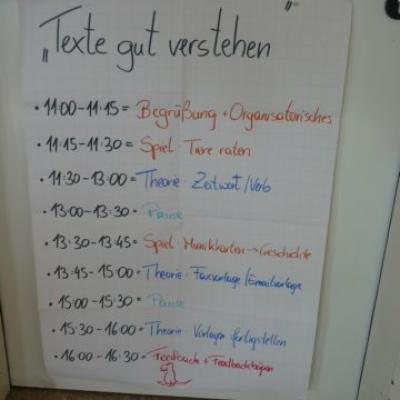 „Texte gut verstehen"
• 11:00-11:15 = Begrüßung + Organisatorisches
• 11:15-11:30 = Spiel: Tiere raten
• 11:30-13:00 = Theorie: Zeitwort/Verb
• 13:00-13:30 = Pause
• 13:30-13:45 = Spiel: Musikkarten → Geschichte
• 13:45-15:00 = Theorie: Faxvorlage/Emailvorlage
• 15:00-15:30 = Pause
• 15:30-16:00 = Theorie: Vorlagen fertigstellen
• 16:00-16:30 = Feedback + Feedbackbögen